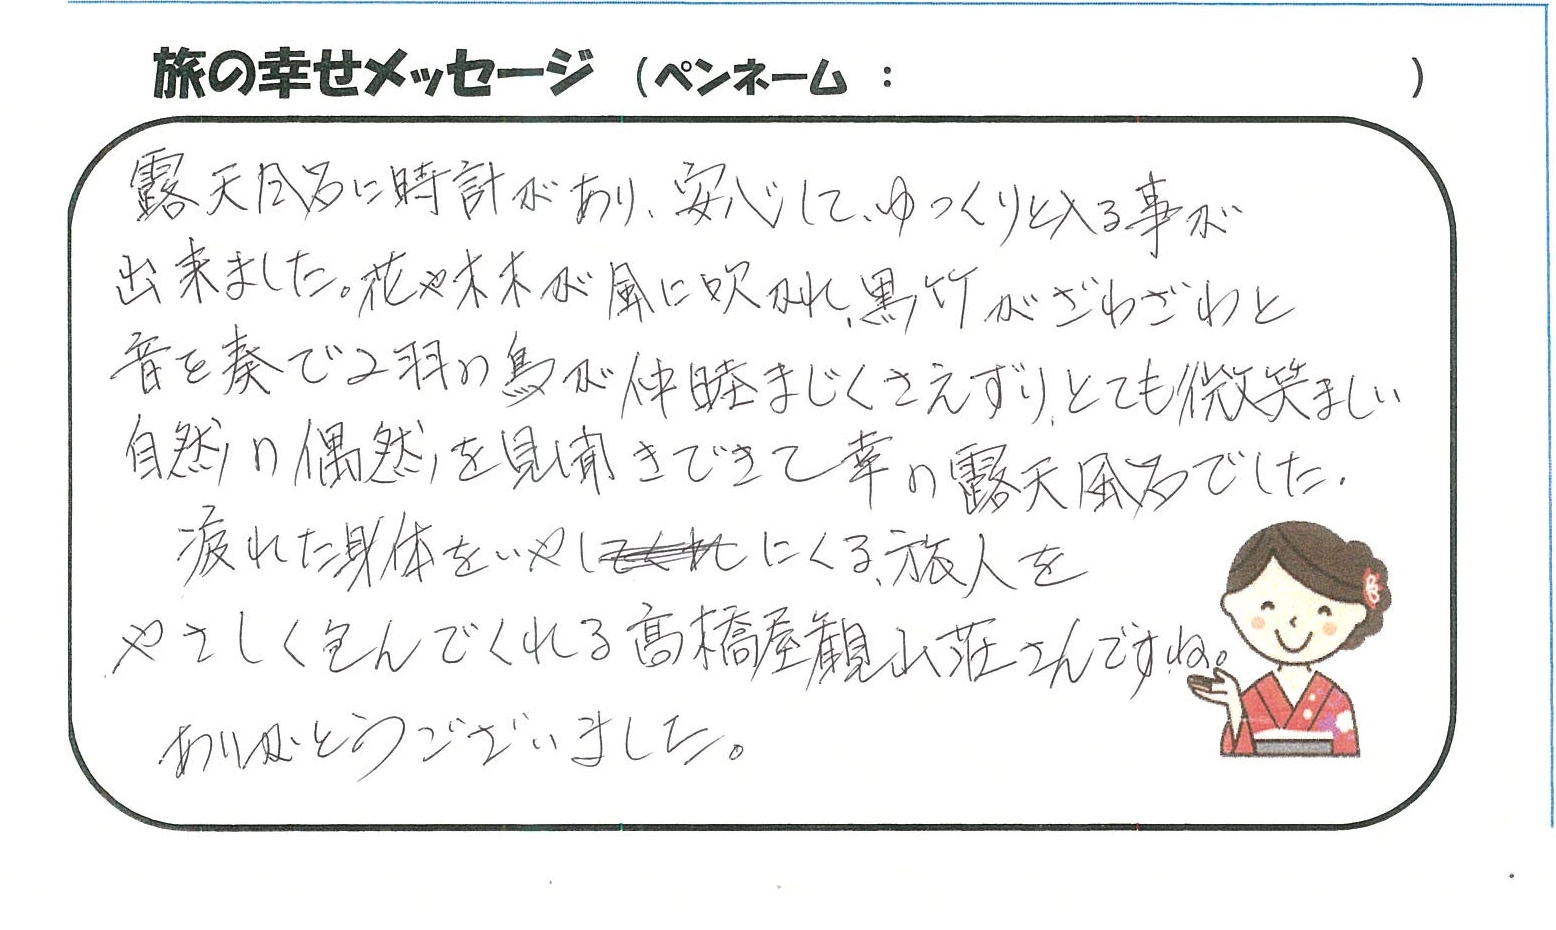 旅の幸せメッセージ (ペンネーム : )
露天風呂に時計があり、安心して、ゆっくりと入る事が
出来ました。花や木木が風に吹かれ、黒竹がざわざわと
音を奏で2羽の鳥が仲睦まじくさえずり、とても微笑ましい
自然の偶然を見聞きできて幸の露天風呂でした。
疲れた身体をいやしにくる、旅人を
やさしく包んでくれる髙橋屋観山荘さんですね。
ありがとうございました。